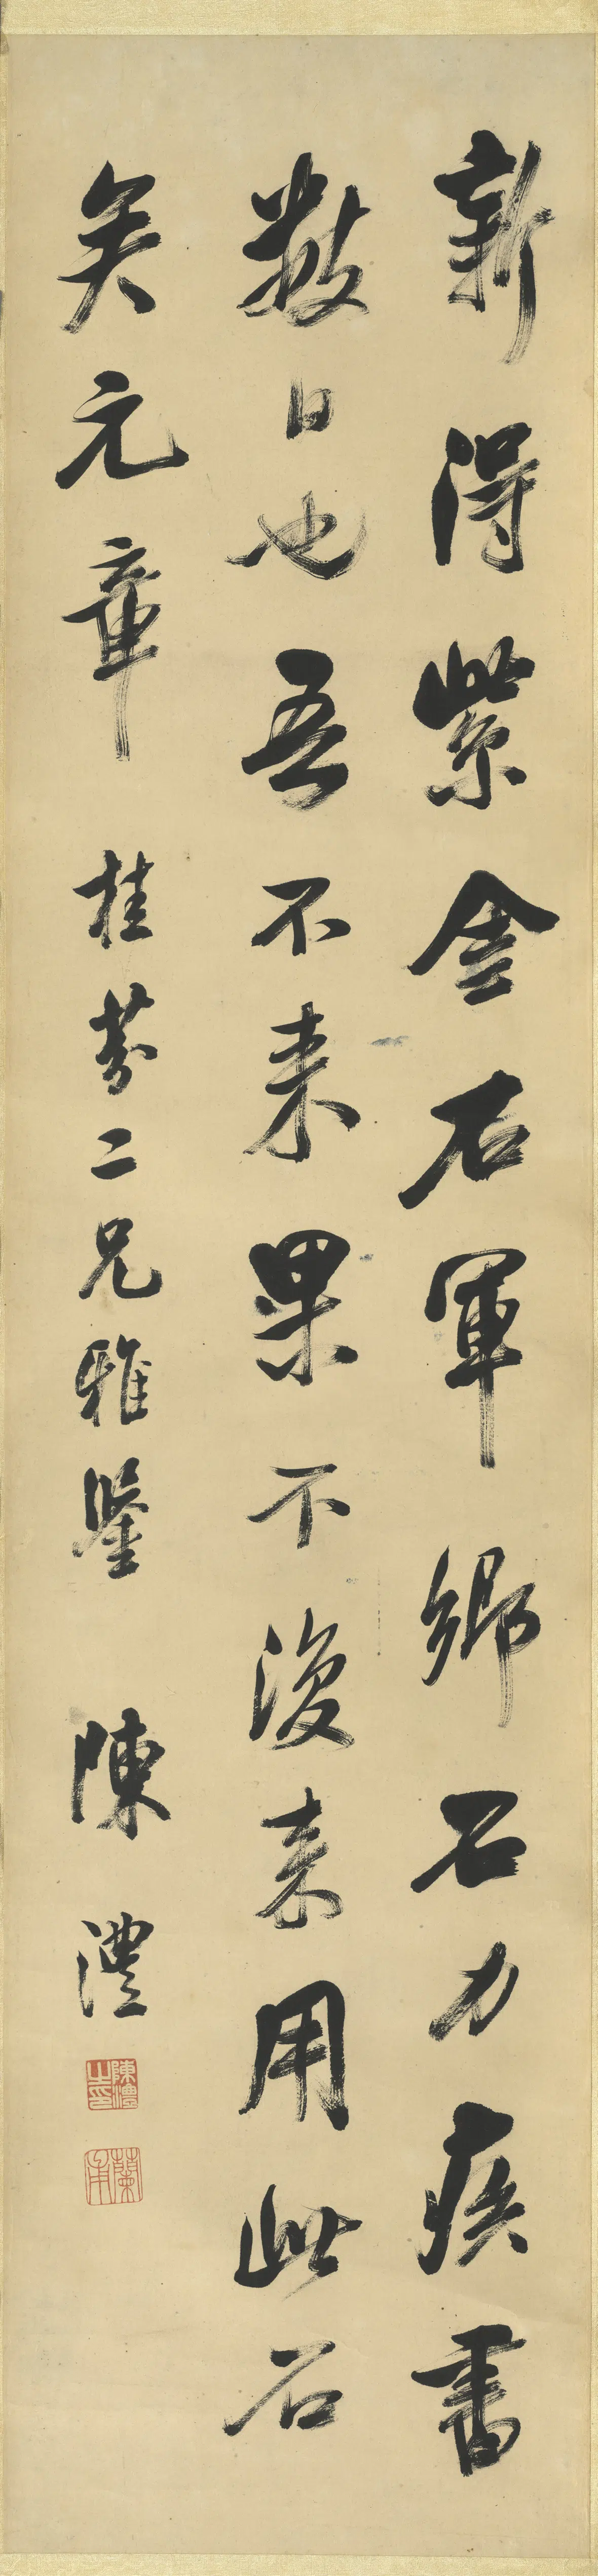 新得紫金右軍鄉石力疾書
數日也吾不来果不復来用此石
矣元章 桂芬二兄雅鑒 陳澧
陳澧之印
蘭甫